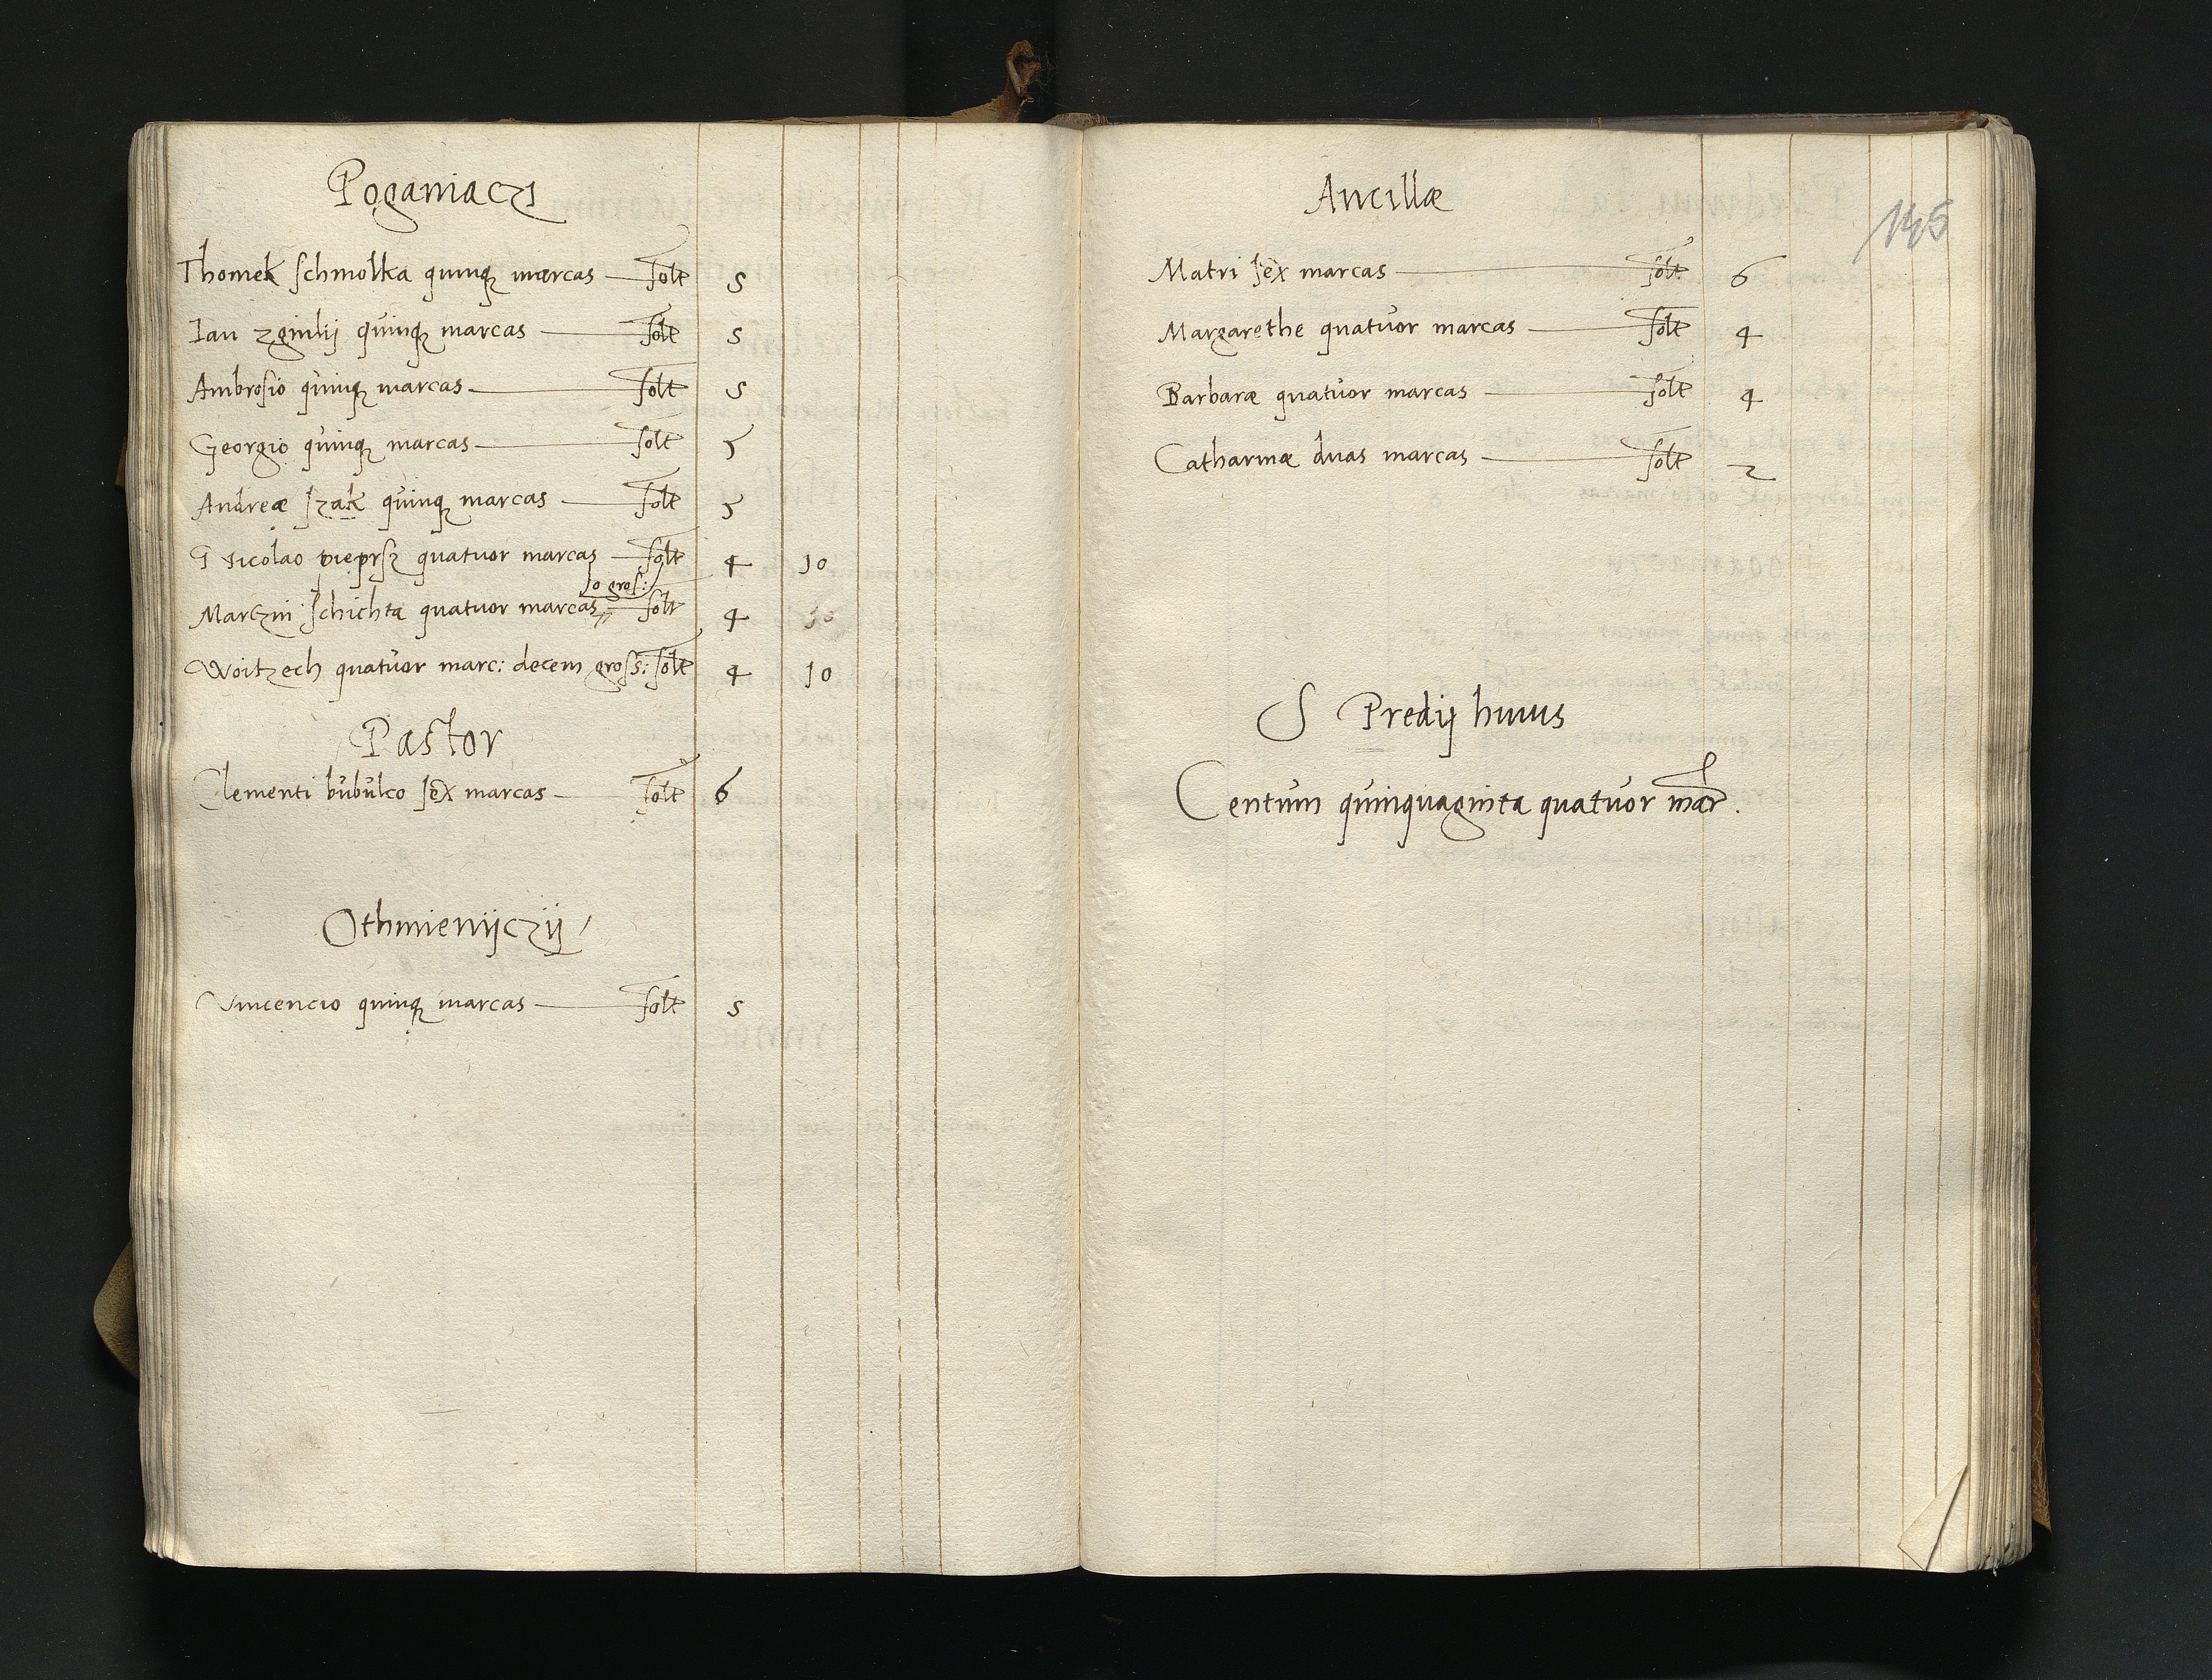 Poganiaczi
Thomek schmolka quinq3 marcas solt 5
Ian zginlij quinq3 marcas solt 5
Ambrosio quinq3 marcas solt 5
Georgio quinq3 marcas solt 5
Andreæ szak quinq3 marcas solt 5
Nicolao pieprsz quatuor marcas solt 4 10
10 gros:
Martzin schichta quatuor marcas solt 4 10
Woitzech quatuor marc: decem gross: solt 4 10
Pastor
Clementi bubulco sex marcas solt 6
Othmienijczij
Vincencio quinq3 marcas solt 5
Ancillæ
145
Matri sex marcas solt 6
Margarethe quatuor marcas solt 4
Barbaræ quatuor marcas solt 4
Catharinæ duas marcas solt 2
S Predij huius
Centum quinquaginta quatuor mar.